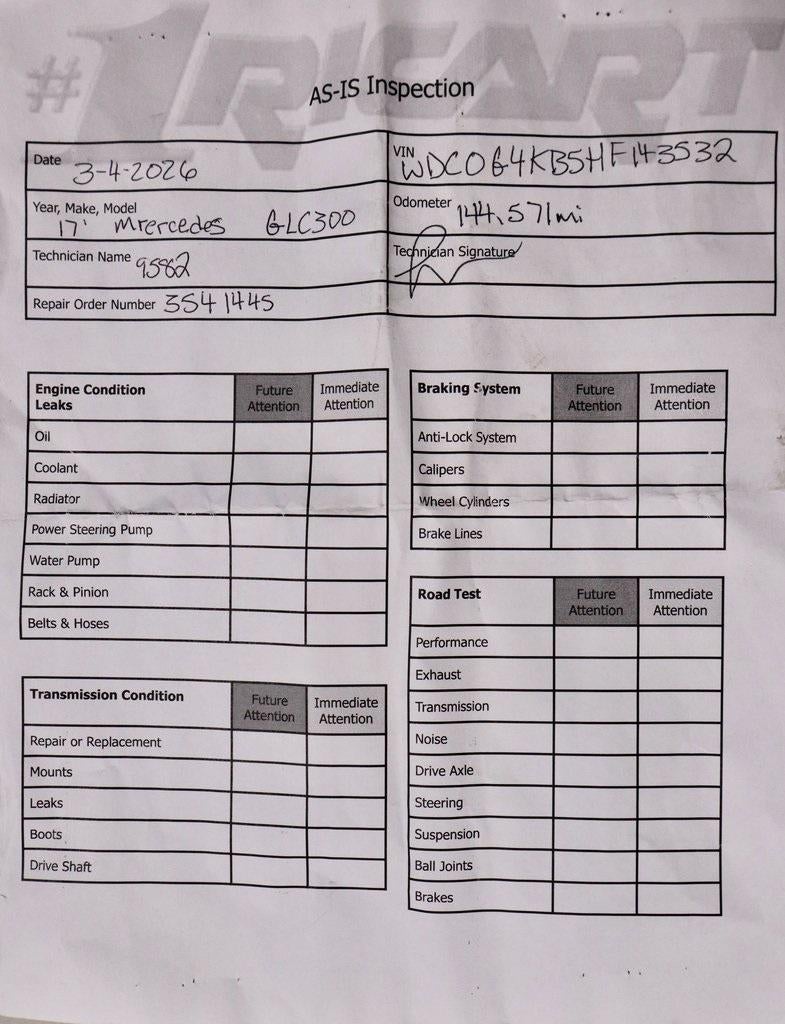 #1 RICART
AS-IS Inspection
Date 3-4-2026
VIN WDC0G4KB5HF143532
Year, Make, Model 17' Mrercedes GLC300
Odometer 144,571mi
Technician Name 9582
Technician Signature
Repair Order Number 3541445
Engine Condition Leaks Future Attention Immediate Attention
Oil
Coolant
Radiator
Power Steering Pump
Water Pump
Rack & Pinion
Belts & Hoses
Transmission Condition Future Attention Immediate Attention
Repair or Replacement
Mounts
Leaks
Boots
Drive Shaft
Braking System Future Attention Immediate Attention
Anti-Lock System
Calipers
Wheel Cylinders
Brake Lines
Road Test Future Attention Immediate Attention
Performance
Exhaust
Transmission
Noise
Drive Axle
Steering
Suspension
Ball Joints
Brakes